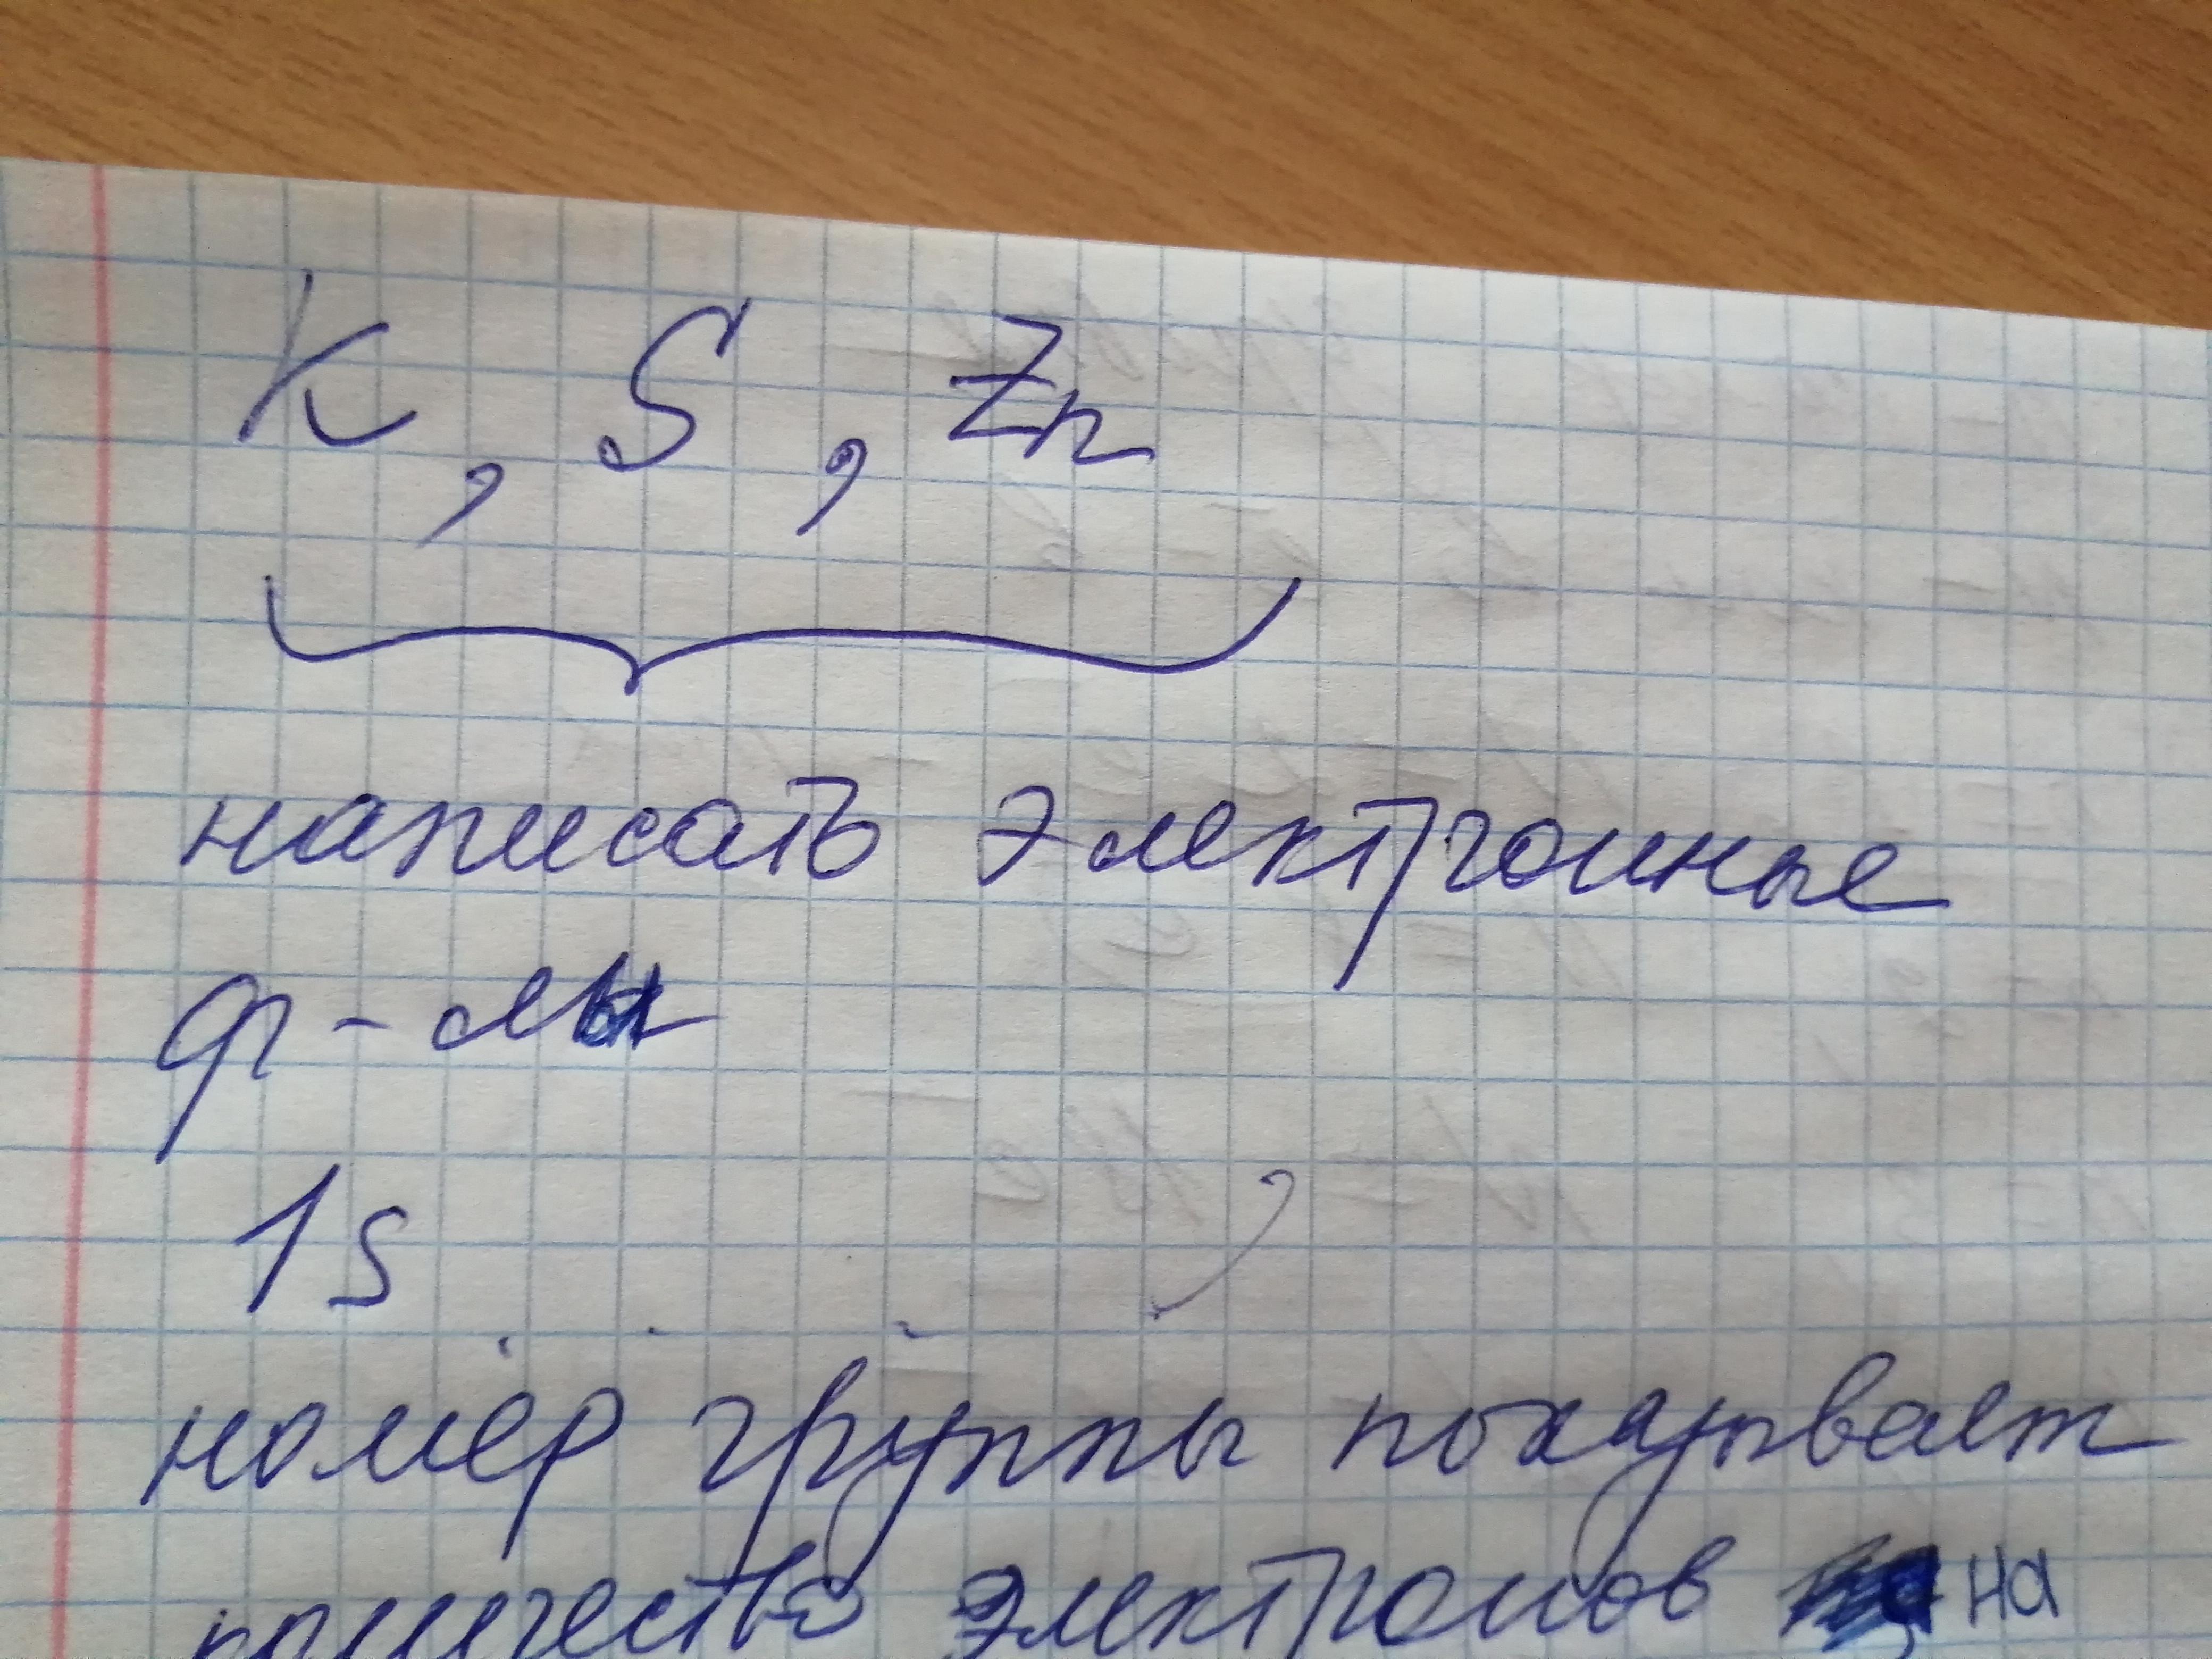 K, S, Zn
написать электронные
ф-лы
1s
номер группы показывает
количество электронов на